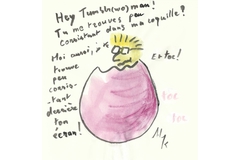 Hey Tumblr(wo)man!
Tu me trouves peu
consistant dans ma coquille?
Moi aussi, je te
trouve
peu
consis-
tant
derrière
ton
écran!
Et toc!
toc
toc